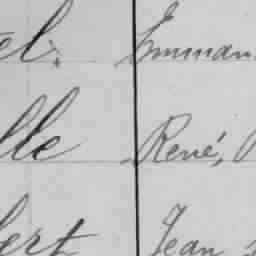 el. Emman
lle René,
bert Jean